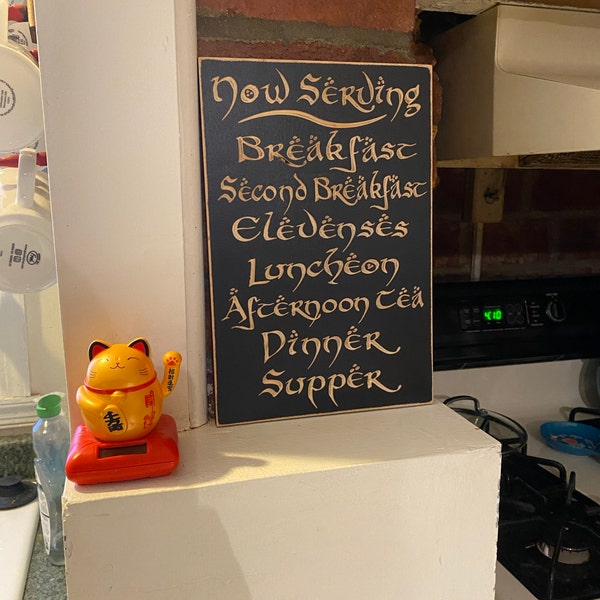 Now Serving
Breakfast
Second Breakfast
Elevenses
Luncheon
Afternoon Tea
Dinner
Supper
4:10